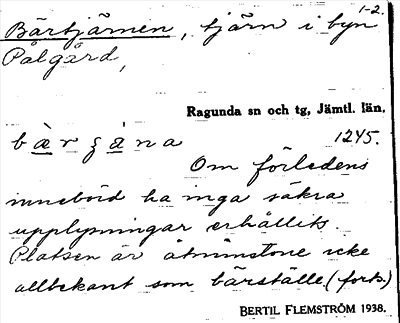 1-2.
Bärtjärnen, tjärn i byn
Pålgård,
Ragunda sn och tg, Jämtl. län.
1245.
Om förledens
innebörd ha inga säkra
upplysningar erhållits.
Platsen är åtminstone icke
allbekant som bärställe. (forts.)
BERTIL FLEMSTRÖM 1938.